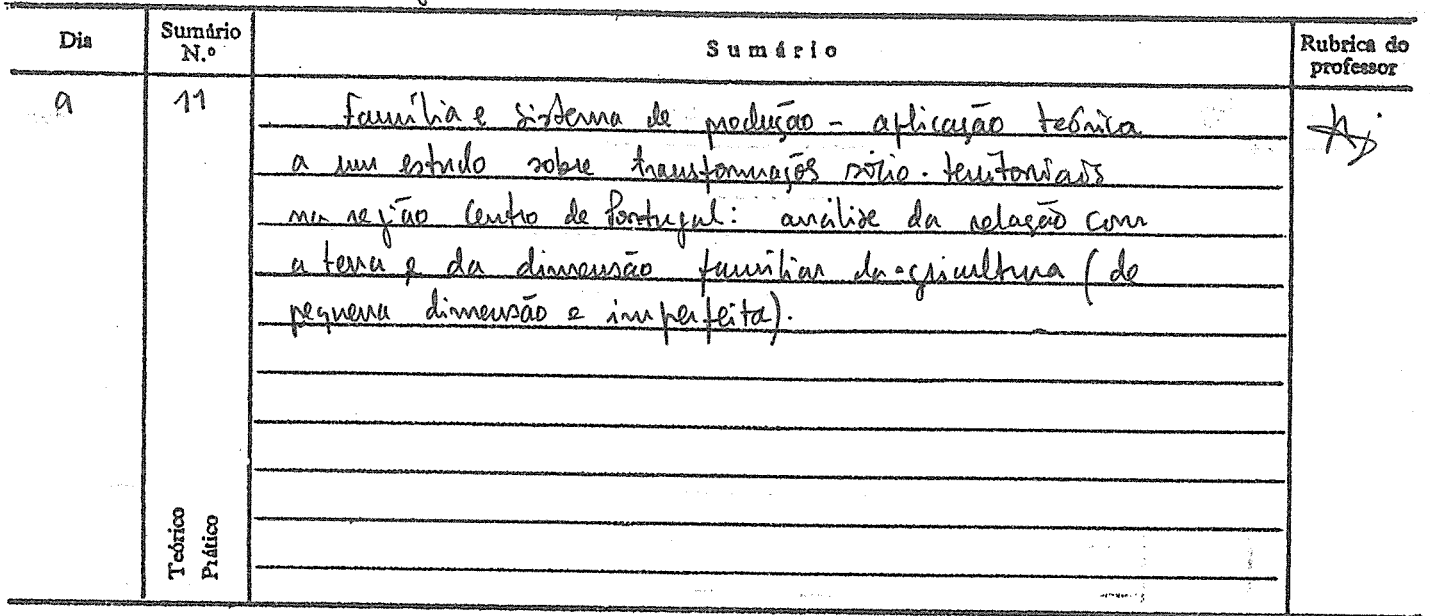 Dia
Sumário N.º
Sumário
Rubrica do professor
9
11
Família e sistema de produção - aplicação teórica
a um estudo sobre transformações sócio-territoriais
na região Centro de Portugal: análise da relação com
a terra e da dimensão familiar da agricultura (de
pequena dimensão e imperfeita).
Teórico
Prático